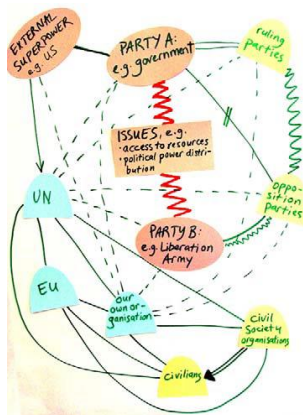 EXTERNAL
SUPERPOWER
e.g. US
PARTY A:
e.g. government
ruling
parties
ISSUES, e.g.
• access to resources
• political power distri-
bution
UN
oppo-
sition
parties
PARTY B:
e.g. Liberation
Army
EU
our
own or-
ganisation
Civil
Society
organisations
civilians